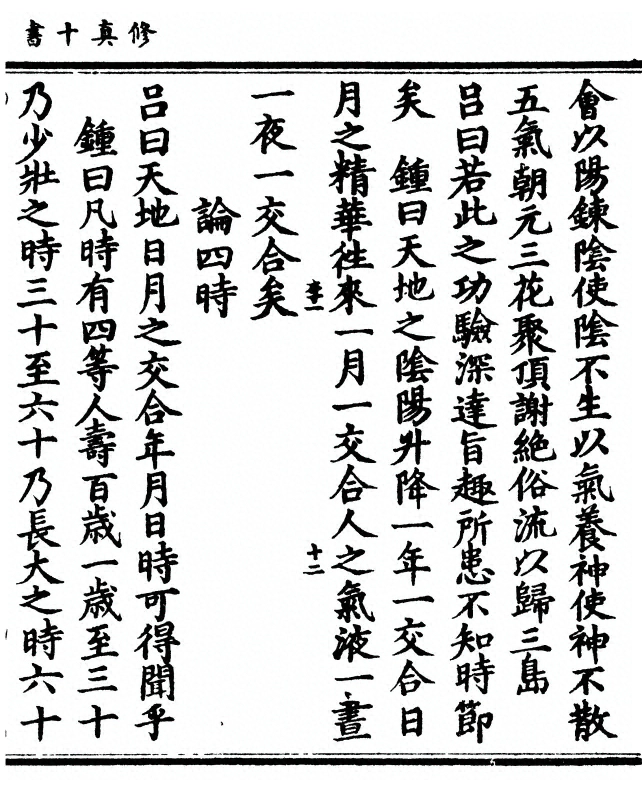 修真十書
會以陽鍊陰使陰不生以氣養神使神不散
五氣朝元三花聚頂謝絕俗流以歸三島
呂曰若此之功驗深達旨趣所患不知時節
矣　鍾曰天地之陰陽升降一年一交合日
月之精華徃來一月一交合人之氣液一晝
十二
一夜一交合矣
論四時
呂曰天地日月之交合年月日時可得聞乎
鍾曰凡時有四等人壽百歲一歲至三十
乃少壯之時三十至六十乃長大之時六十